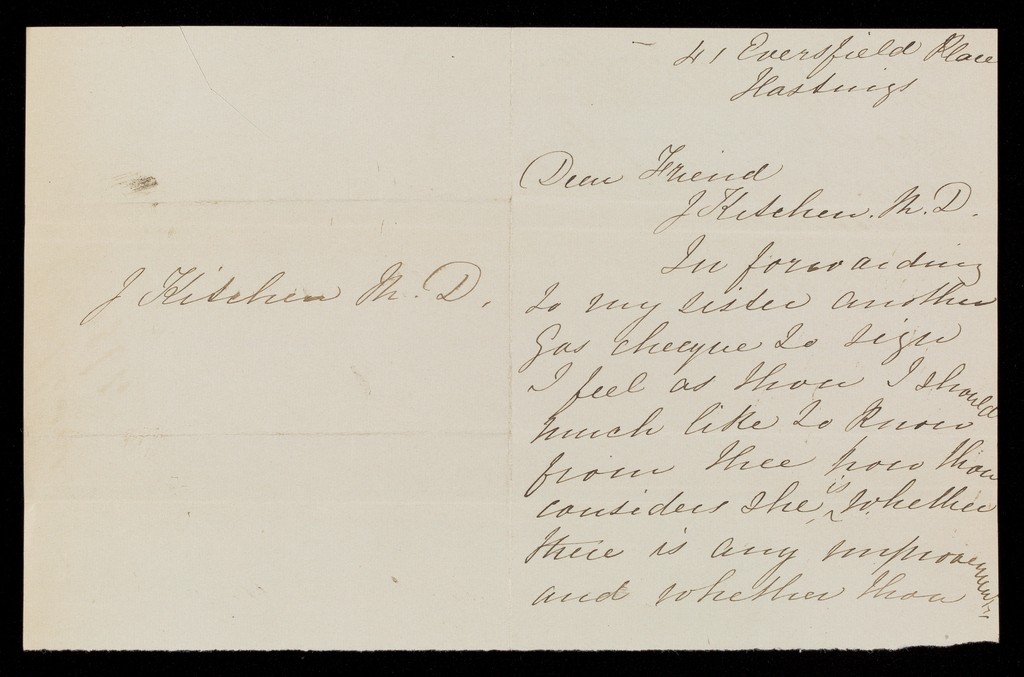 J Kitchen M. D.
41 Eversfield Place
Hastings
Dear Friend
J Kitchen. M. D.
In forwarding
to my sister another
Gas cheque to sign
I feel as thou I should
much like to know
from thee how thou
considers she is, whether
there is any improvement,
and whether thou